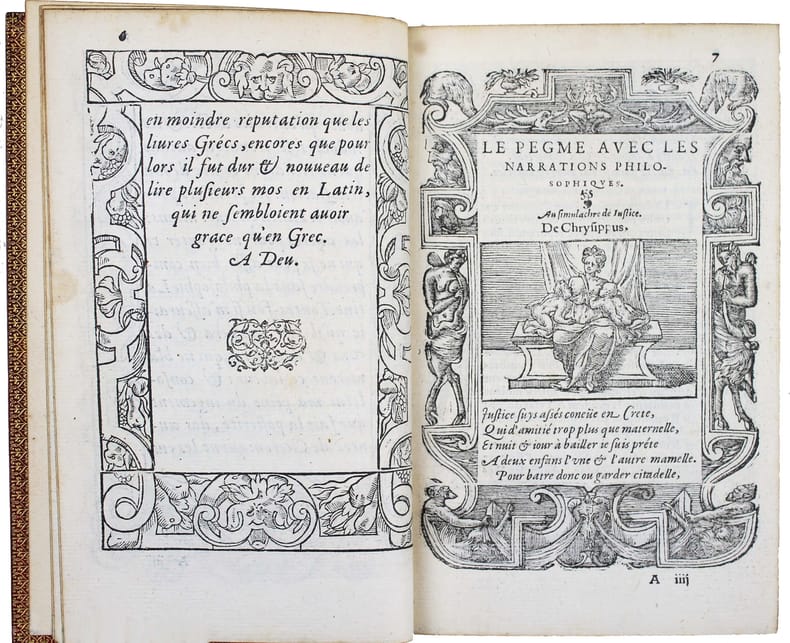 6
en moindre reputation que les
liures Grécs, encores que pour
lors il fut dur & nouueau de
lire plusieurs mos en Latin,
qui ne sembloient auoir
grace qu'en Grec.
A Deu.
7
LE PEGME AVEC LES
NARRATIONS PHILO-
SOPHIQVES.
Au simulachre de Iustice.
De Chrysippus.
Justice suys assés conceüe en Crete,
Qui d'amitié trop plus que maternelle,
Et nuit & iour à bailler ie suis préte
A deux enfans l'vne & l'autre mamelle.
Pour batre donc ou garder citadelle,
A iiij